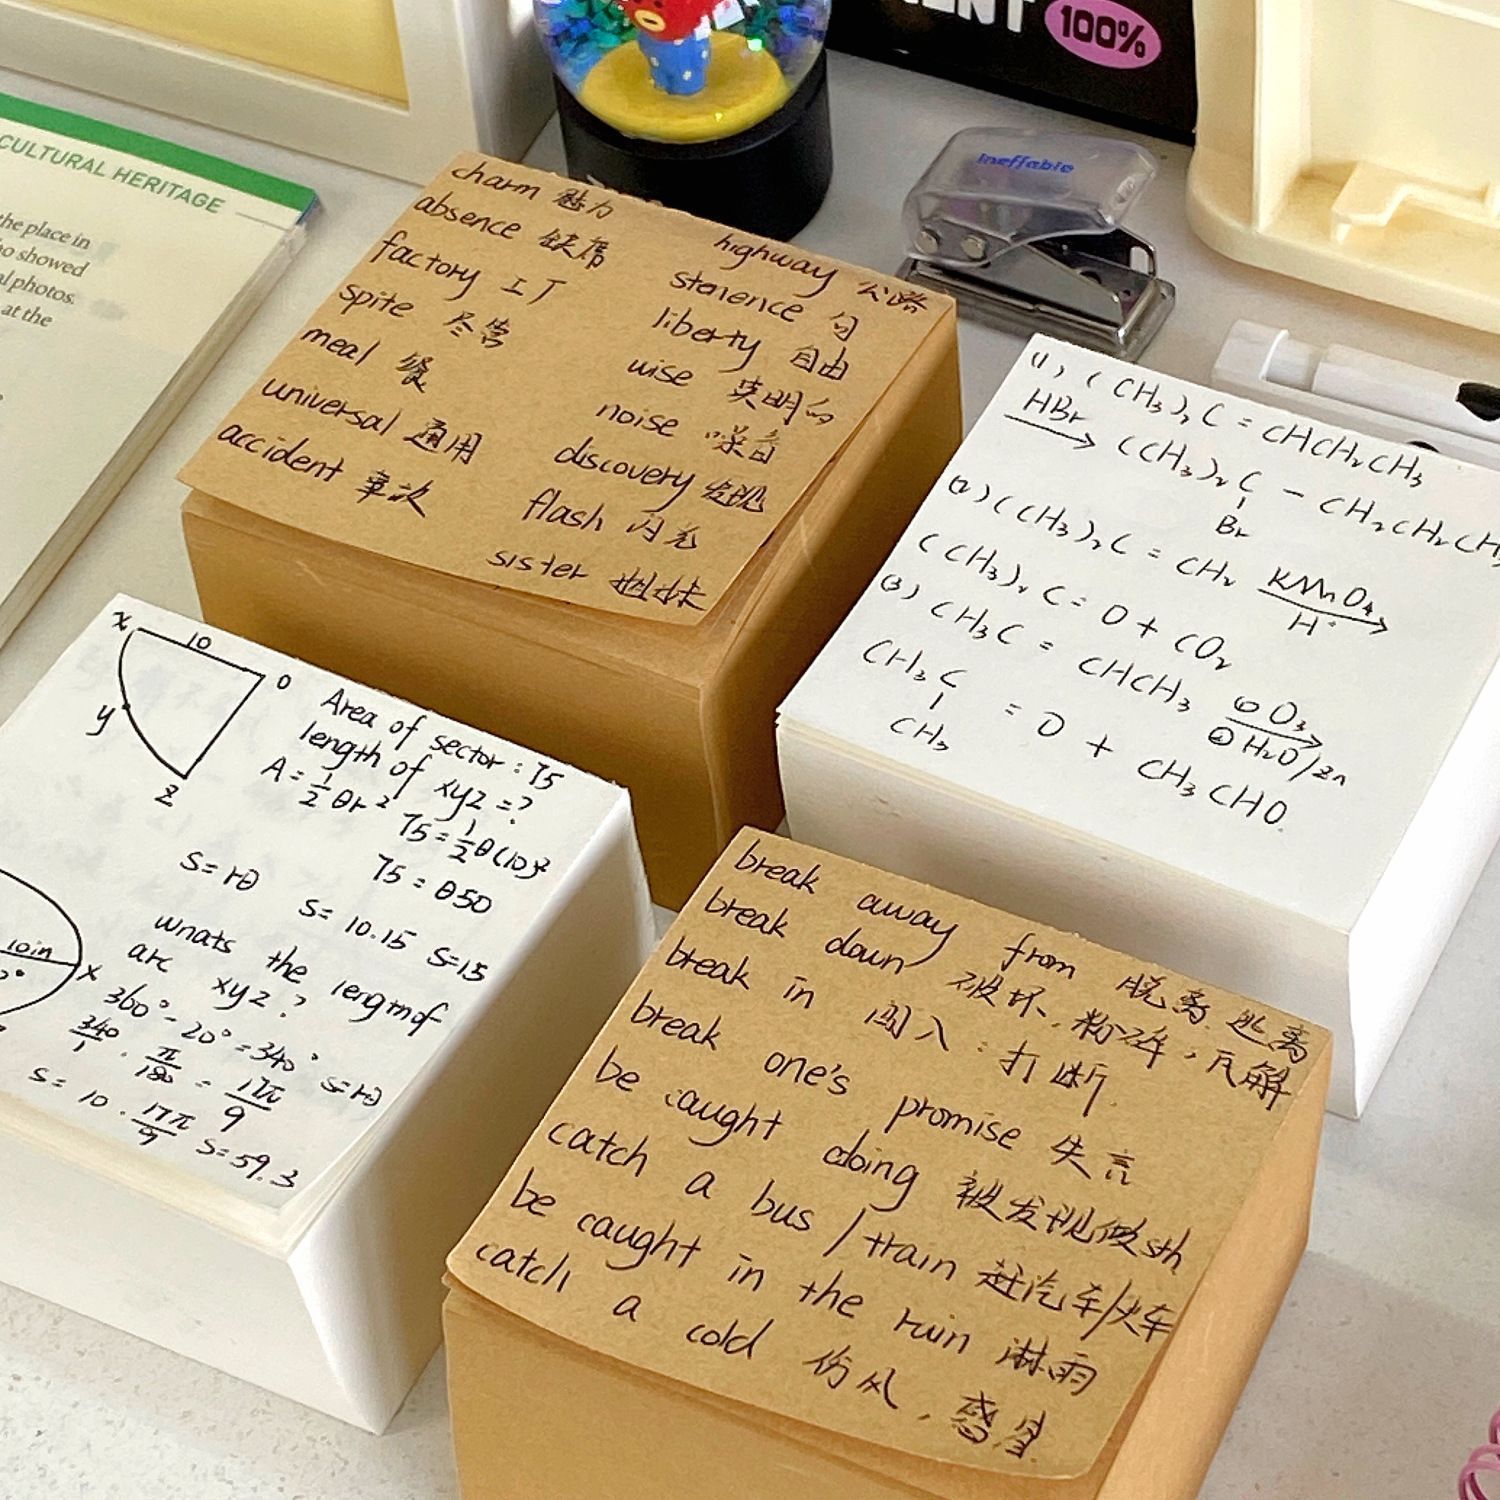 ENT
100%
CULTURAL HERITAGE
the place in
o showed
al photos.
at the
ineffable
charm 魅力
absence 缺席
factory 工厂
spite 尽害
meal 餐
universal 通用
accident 事故
highway 公路
stenence 句
liberty 自由
wise 英明的
noise 噪音
discovery 发现
flash 闪光
sister 姐妹
(1) (CH₃)₂C = CHCH₂CH₃
HBr
→ (CH₃)₂C - CH₂CH₂CH₃
Br
(2) (CH₃)₂C = CH₂ KMnO₄
H⁺
(CH₃)₂C = O + CO₂
(3) CH₃C = CHCH₃ ① O₃
② H₂O/Zn
CH₃C = O + CH₃CHO
CH₃
x 10 o
y
z
Area of sector : 75
length of xyz = ?
A = 1/2 θr²
75 = 1/2 θ(10)²
75 = θ50
s = rθ
s = 10.15 s=15
whats the length of
arc xyz ?
10in
x
360° - 20° = 340° s=rθ
340/1 · π/180 = 17π/9
s = 10 · 17π/9 s=59.3
break away from 脱离.逃离
break down 破坏.粉碎,瓦解
break in 闯入;打断.
break one's promise 失言
be caught doing 被发现做sth
catch a bus / train 赶汽车/火车
be caught in the rain 淋雨
catch a cold 伤风,感冒